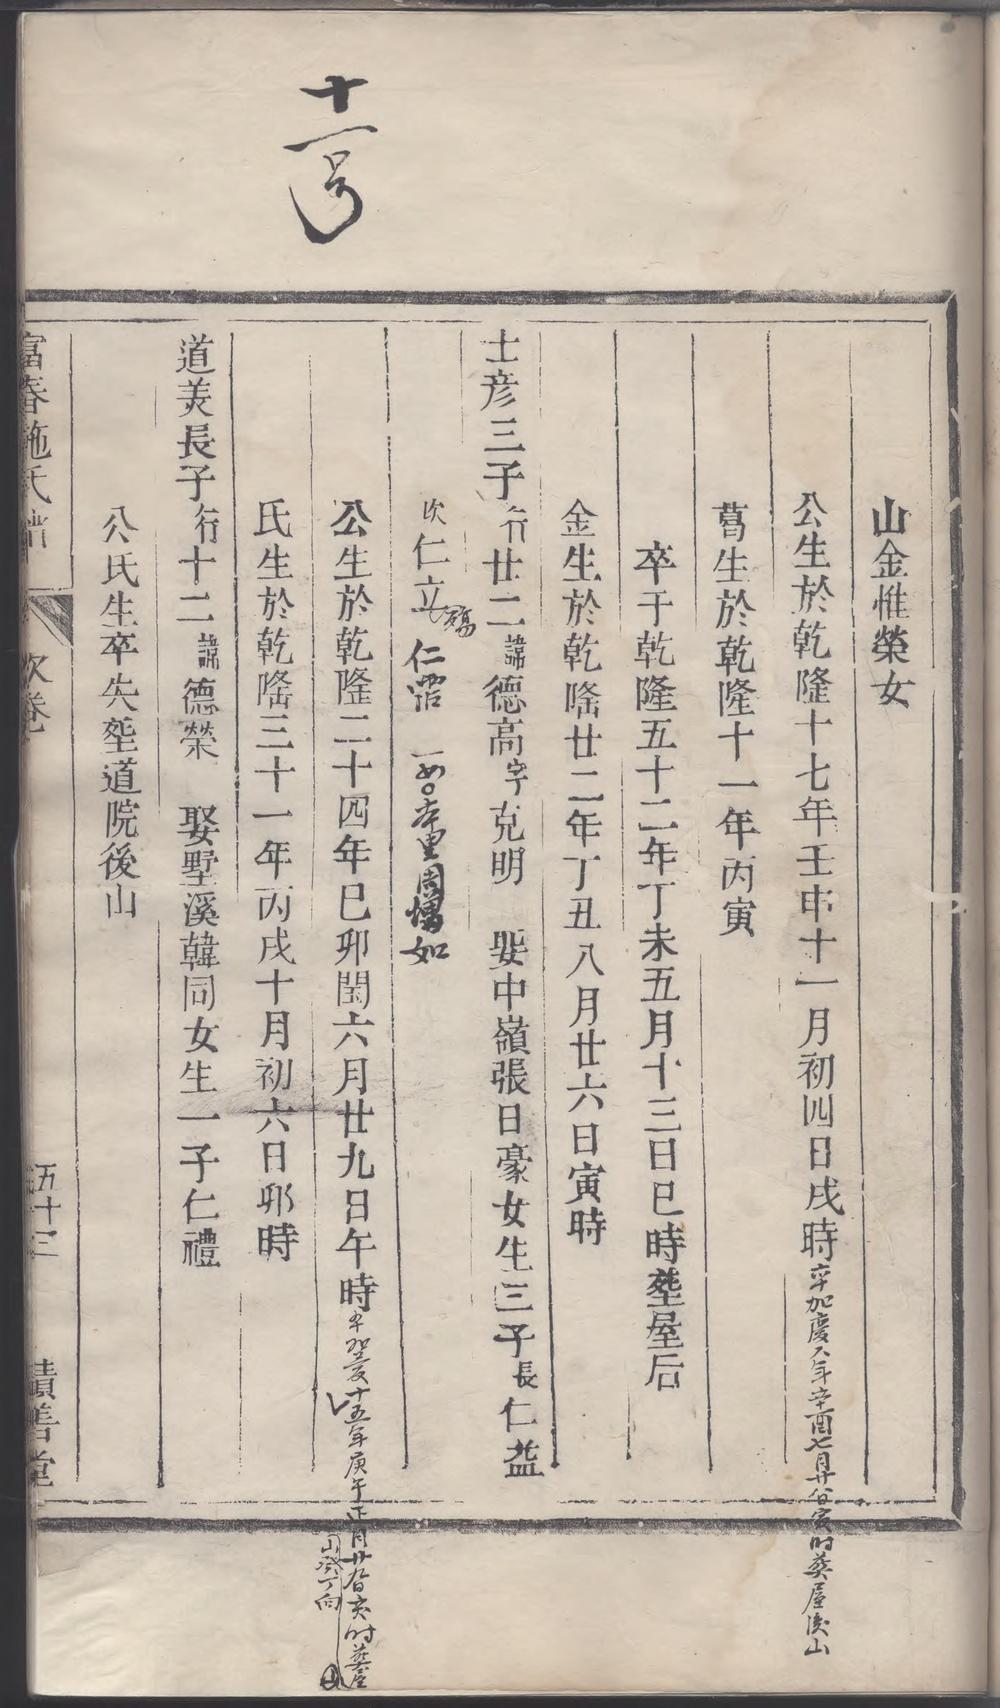 十一号
山金惟榮女
公生於乾隆十七年壬申十一月初四日戌時卒加慶六年辛酉七月廿八日寅时葬屋後山
葛生於乾隆十一年丙寅
卒于乾隆五十二年丁未五月十三日巳時塟屋后
金生於乾隆廿二年丁丑八月廿六日寅時
士彦三子行廿二諱德高字克明 娶中嶺張日豪女生三子長仁益
次仁立殤 仁霑 一女○本里周增如
公生於乾隆二十四年巳卯閏六月廿九日午時卒加慶十五年庚午正月廿 日亥时葬屋
山癸丁向
氏生於乾隆三十一年丙戌十月初六日卯時
道美長子行十二諱德榮 娶墅溪韓同女生一子仁禮
公氏生卒失塟道院後山
富春施氏譜 次卷 五十三 積善堂